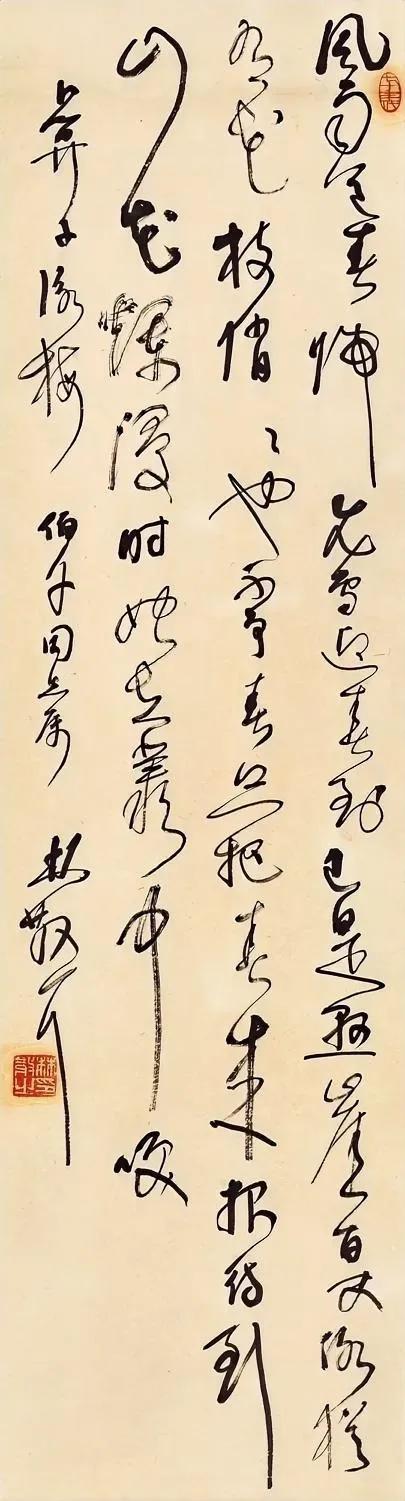 風雨送春歸飛雪迎春到已是懸崖百丈冰猶
有花枝俏〻也不爭春只把春来报待到
山花爛漫时她在叢中咲
卜算子咏梅 同志属 林散耳